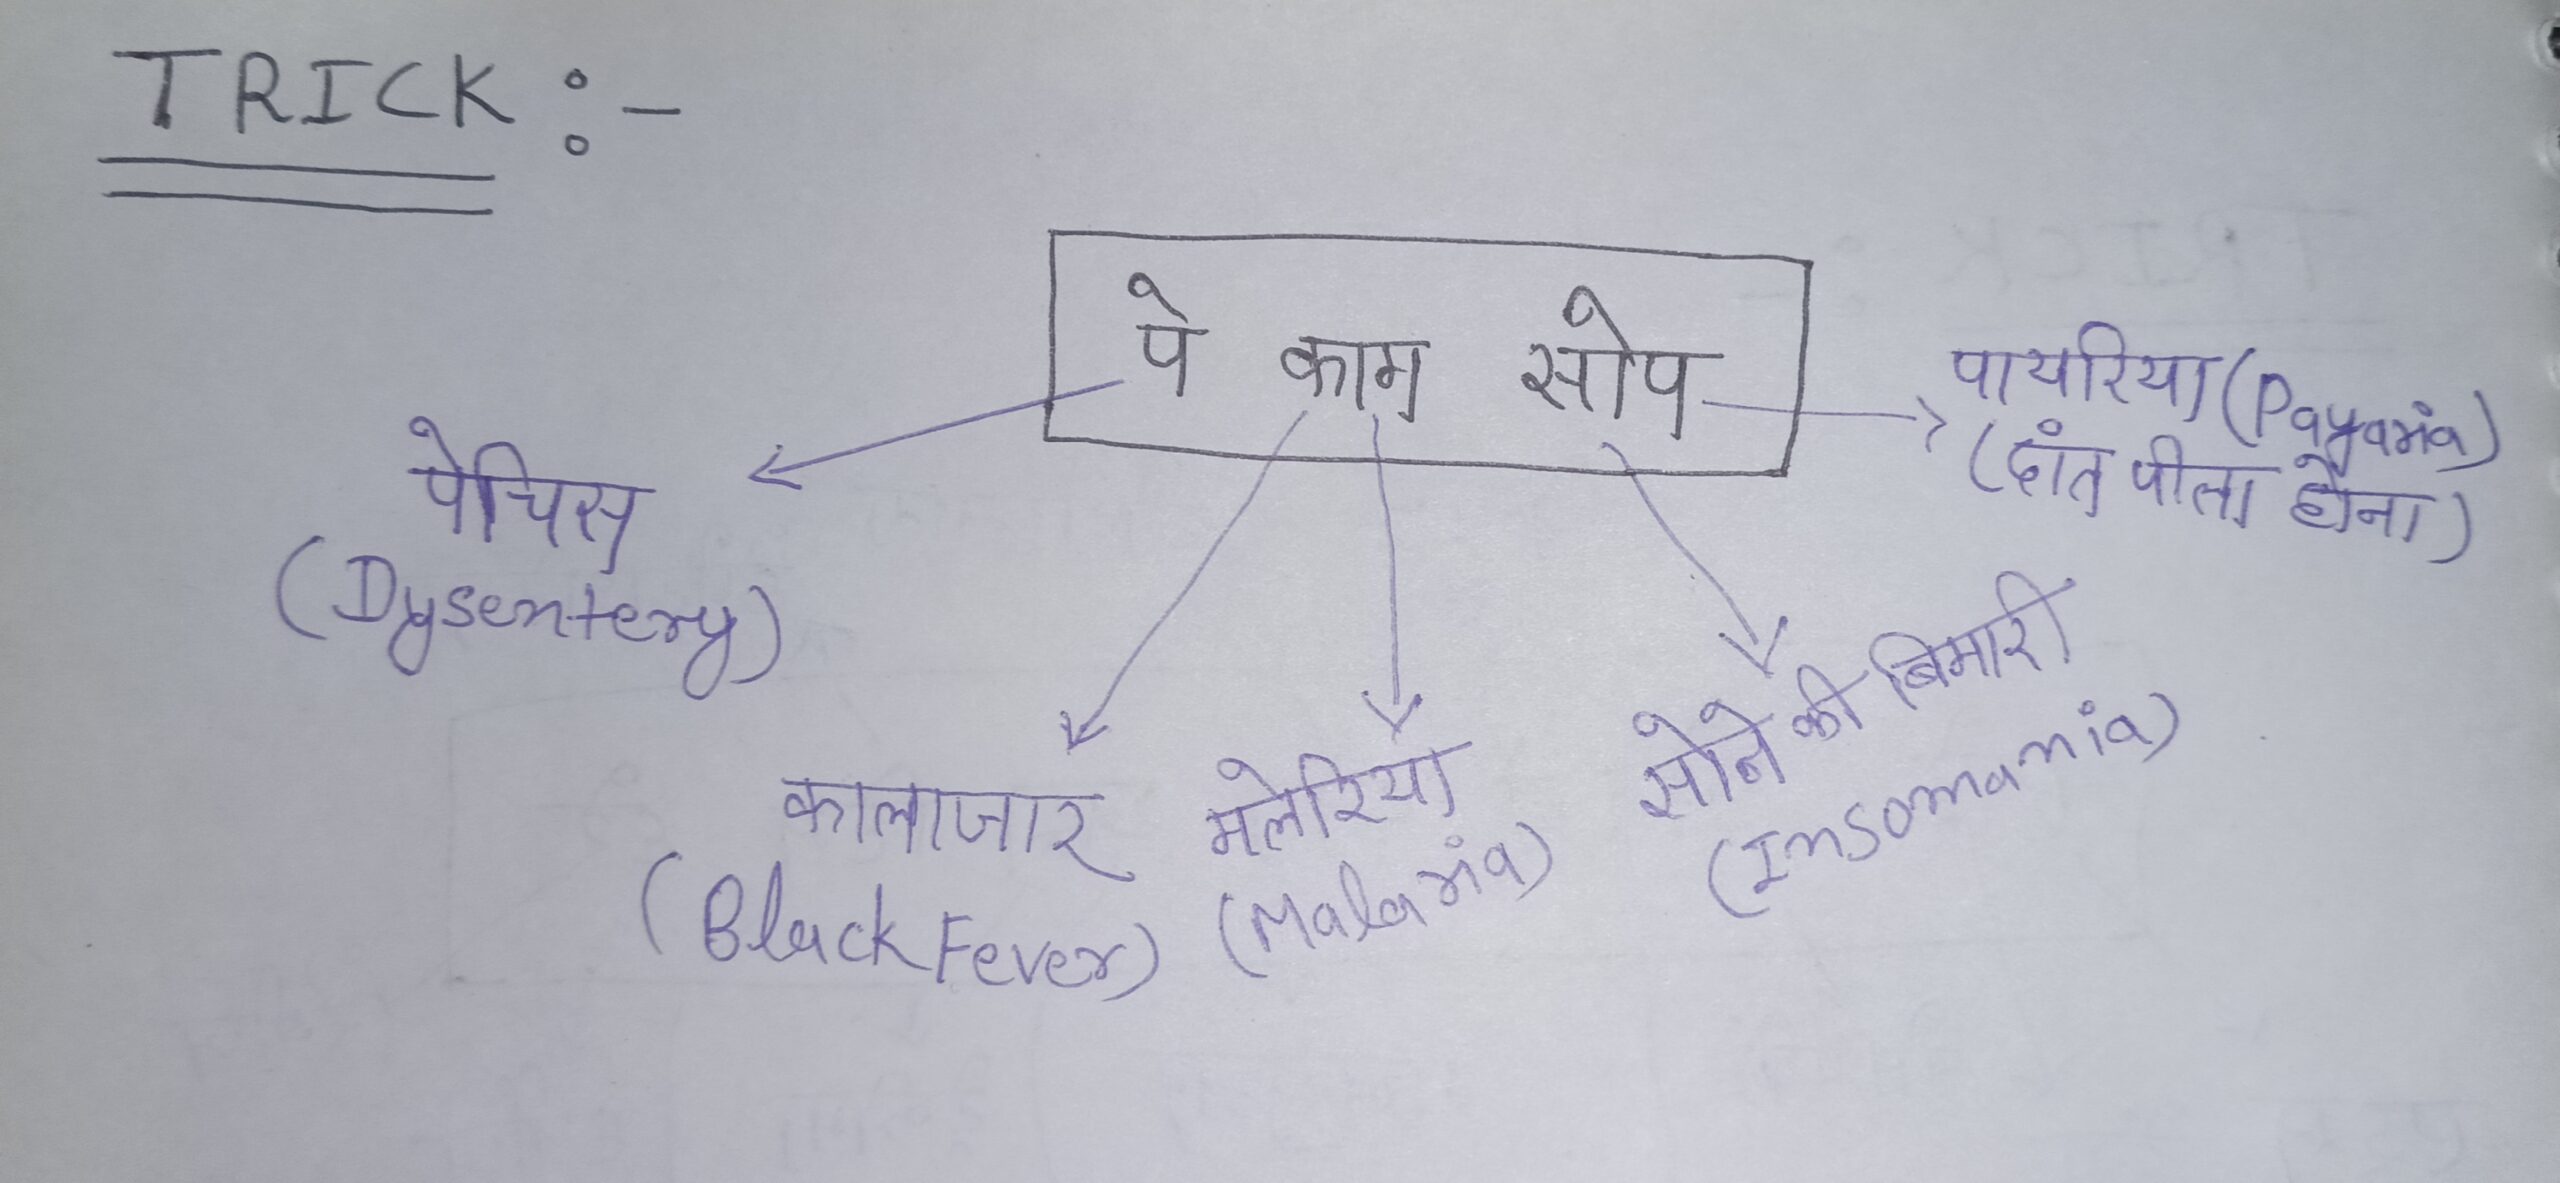 TRICK :-
पे काम सोप
पायरिया (Payaria)
(दांत पीला होना)
पेचिस
(Dysentery)
कालाजार
(Black Fever)
मलेरिया
(Malaria)
सोने की बिमारी
(Insomania)